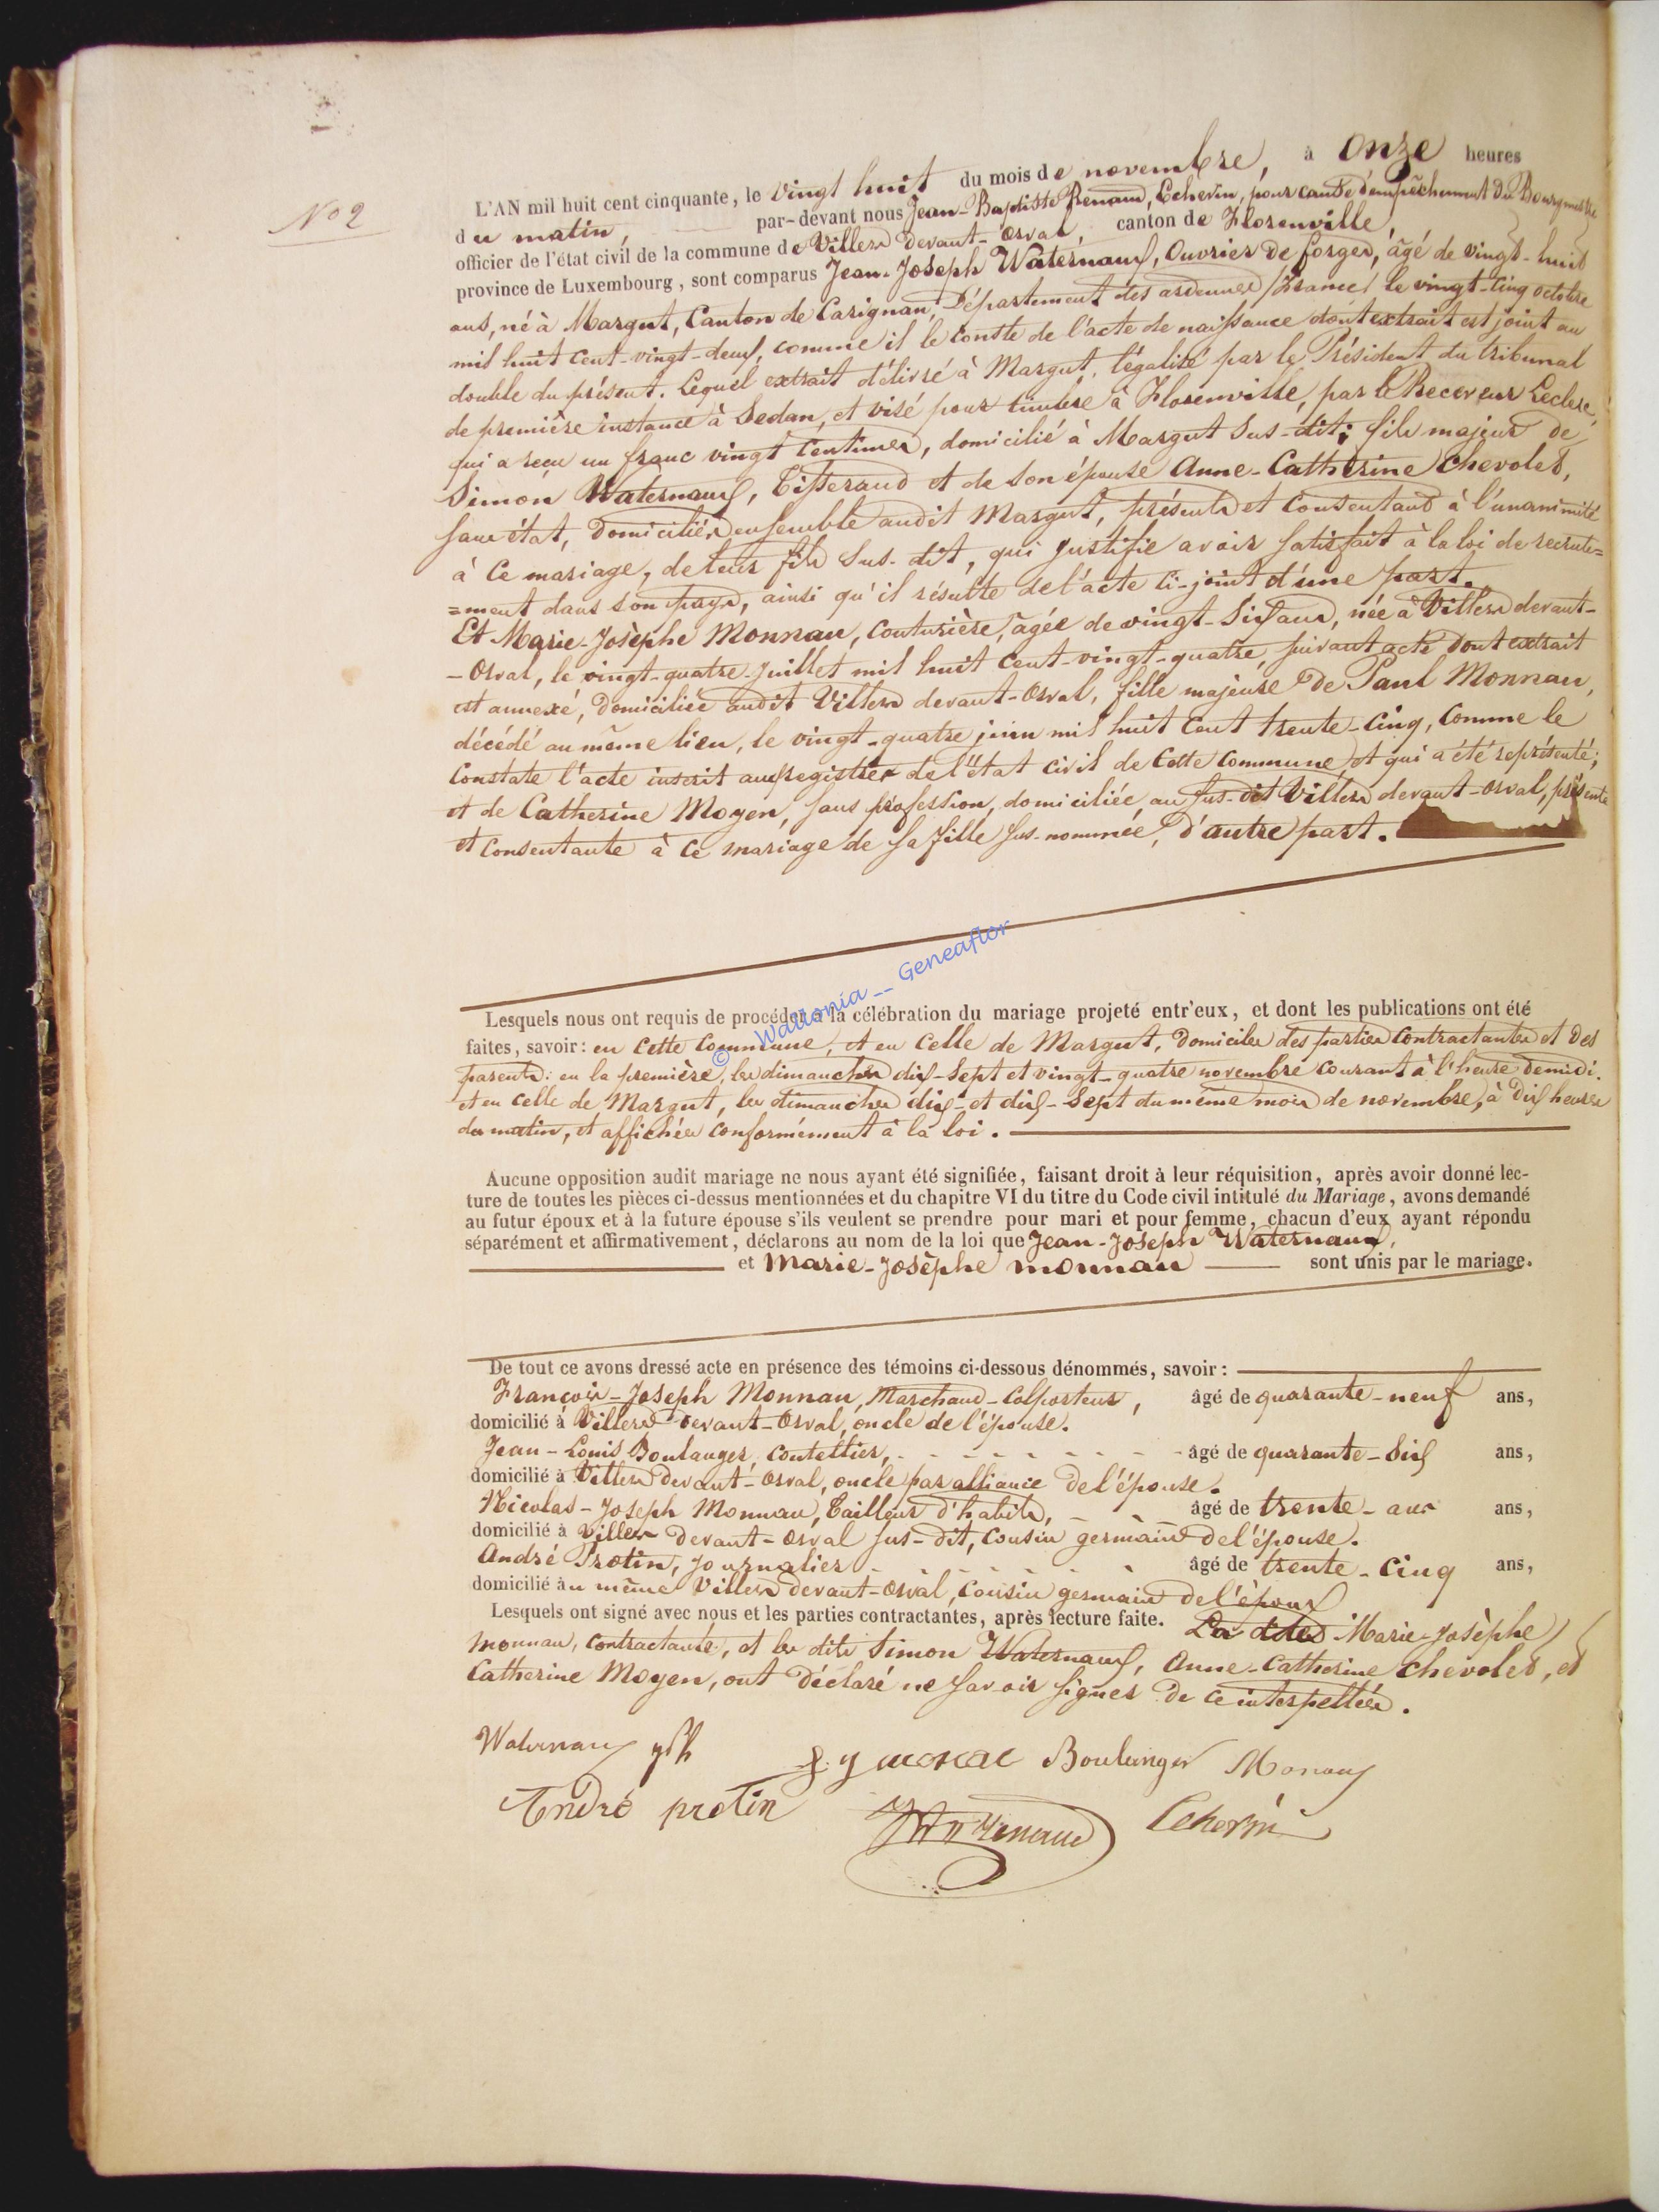 No 2
L'AN mil huit cent cinquante, le vingt huit du mois de novembre, à onze heures
du matin, par-devant nous Jean-Baptiste Renaud, Echevin, pour cause d'empêchement du Bourgmestre
officier de l'état civil de la commune de Villers devant-Orval, canton de Florenville,
province de Luxembourg, sont comparus Jean-Joseph Waternaux, Ouvrier de forges, âgé de vingt-huit
ans, né à Margut, Canton de Carignan, Département des ardennes (France) le vingt-cinq octobre
mil huit cent-vingt-deux, comme il le conste de l'acte de naissance dont extrait est joint au
double du présent. Lequel extrait délivré à Margut, légalisé par le Président du tribunal
de première instance à Sedan, et visé pour timbre à Florenville, par le Receveur Leclere,
qui a reçu un franc vingt centimes, domicilié à Margut sus-dit; fils majeur de
Simon Waternaux, Tisserand et de son épouse Anne-Catherine Chevolet,
sans état, domiciliés ensemble audit Margut, présents et consentant à l'unanimité
à ce mariage, de leur fils sus-dit, qui justifie avoir satisfait à la loi de recrute=
=ment dans son pays, ainsi qu'il résulte de l'acte ci-joint d'une part.
Et Marie-Josèphe Monnau, couturière, âgée de vingt-six ans, née à Villers devant-
-Orval, le vingt-quatre juillet mil huit cent-vingt-quatre, suivant acte dont extrait
est annexé, domiciliée audit Villers devant-Orval, fille majeure de Paul Monnau,
décédé au même lieu, le vingt-quatre juin mil huit cent trente-cinq, comme le
constate l'acte inscrit aux registres de l'état civil de cette commune, et qui a été représenté;
et de Catherine Moyen, sans profession, domiciliée au sus-dit Villers devant-Orval, présente
et consentante à ce mariage de sa fille sus-nommée, d'autre part.
© Wallonia -- Geneaflor
Lesquels nous ont requis de procéder à la célébration du mariage projeté entr'eux, et dont les publications ont été
faites, savoir: en cette commune, et en celle de Margut, domiciles des parties contractantes et des
parents: en la première, les dimanches dix-sept et vingt-quatre novembre courant à l'heure de midi.
et en celle de Margut, les dimanches dix-et dix-sept du même mois de novembre, à dix heures
du matin, et affichées conformément à la loi.
Aucune opposition audit mariage ne nous ayant été signifiée, faisant droit à leur réquisition, après avoir donné lec-
ture de toutes les pièces ci-dessus mentionnées et du chapitre VI du titre du Code civil intitulé du Mariage, avons demandé
au futur époux et à la future épouse s'ils veulent se prendre pour mari et pour femme, chacun d'eux ayant répondu
séparément et affirmativement, déclarons au nom de la loi que Jean-Joseph Waternaux,
et Marie-Josèphe monnau sont unis par le mariage.
De tout ce avons dressé acte en présence des témoins ci-dessous dénommés, savoir:
François-Joseph Monnau, Marchand-Colporteur, âgé de quarante-neuf ans,
domicilié à Villers devant-Orval, oncle de l'épouse.
Jean-Louis Boulanger, coutellier, âgé de quarante-six ans,
domicilié à Villers devant-Orval, oncle par alliance de l'épouse.
Nicolas-Joseph Monnau, Tailleur d'habits, âgé de trente-ans ans,
domicilié à Villers devant-Orval sus-dit, cousin germain de l'épouse.
André Protin, journalier âgé de trente-cinq ans,
domicilié au même Villers devant-Orval, cousin germain de l'époux
Lesquels ont signé avec nous et les parties contractantes, après lecture faite. La dite Marie-Josèphe
Monnau, contractante, et les dits Simon Waternaux, Anne-Catherine Chevolet, et
Catherine Moyen, ont déclaré ne savoir signer de ce interpellés.
Waternaux jph Boulanger Monaux
André protin Renaud Echevin